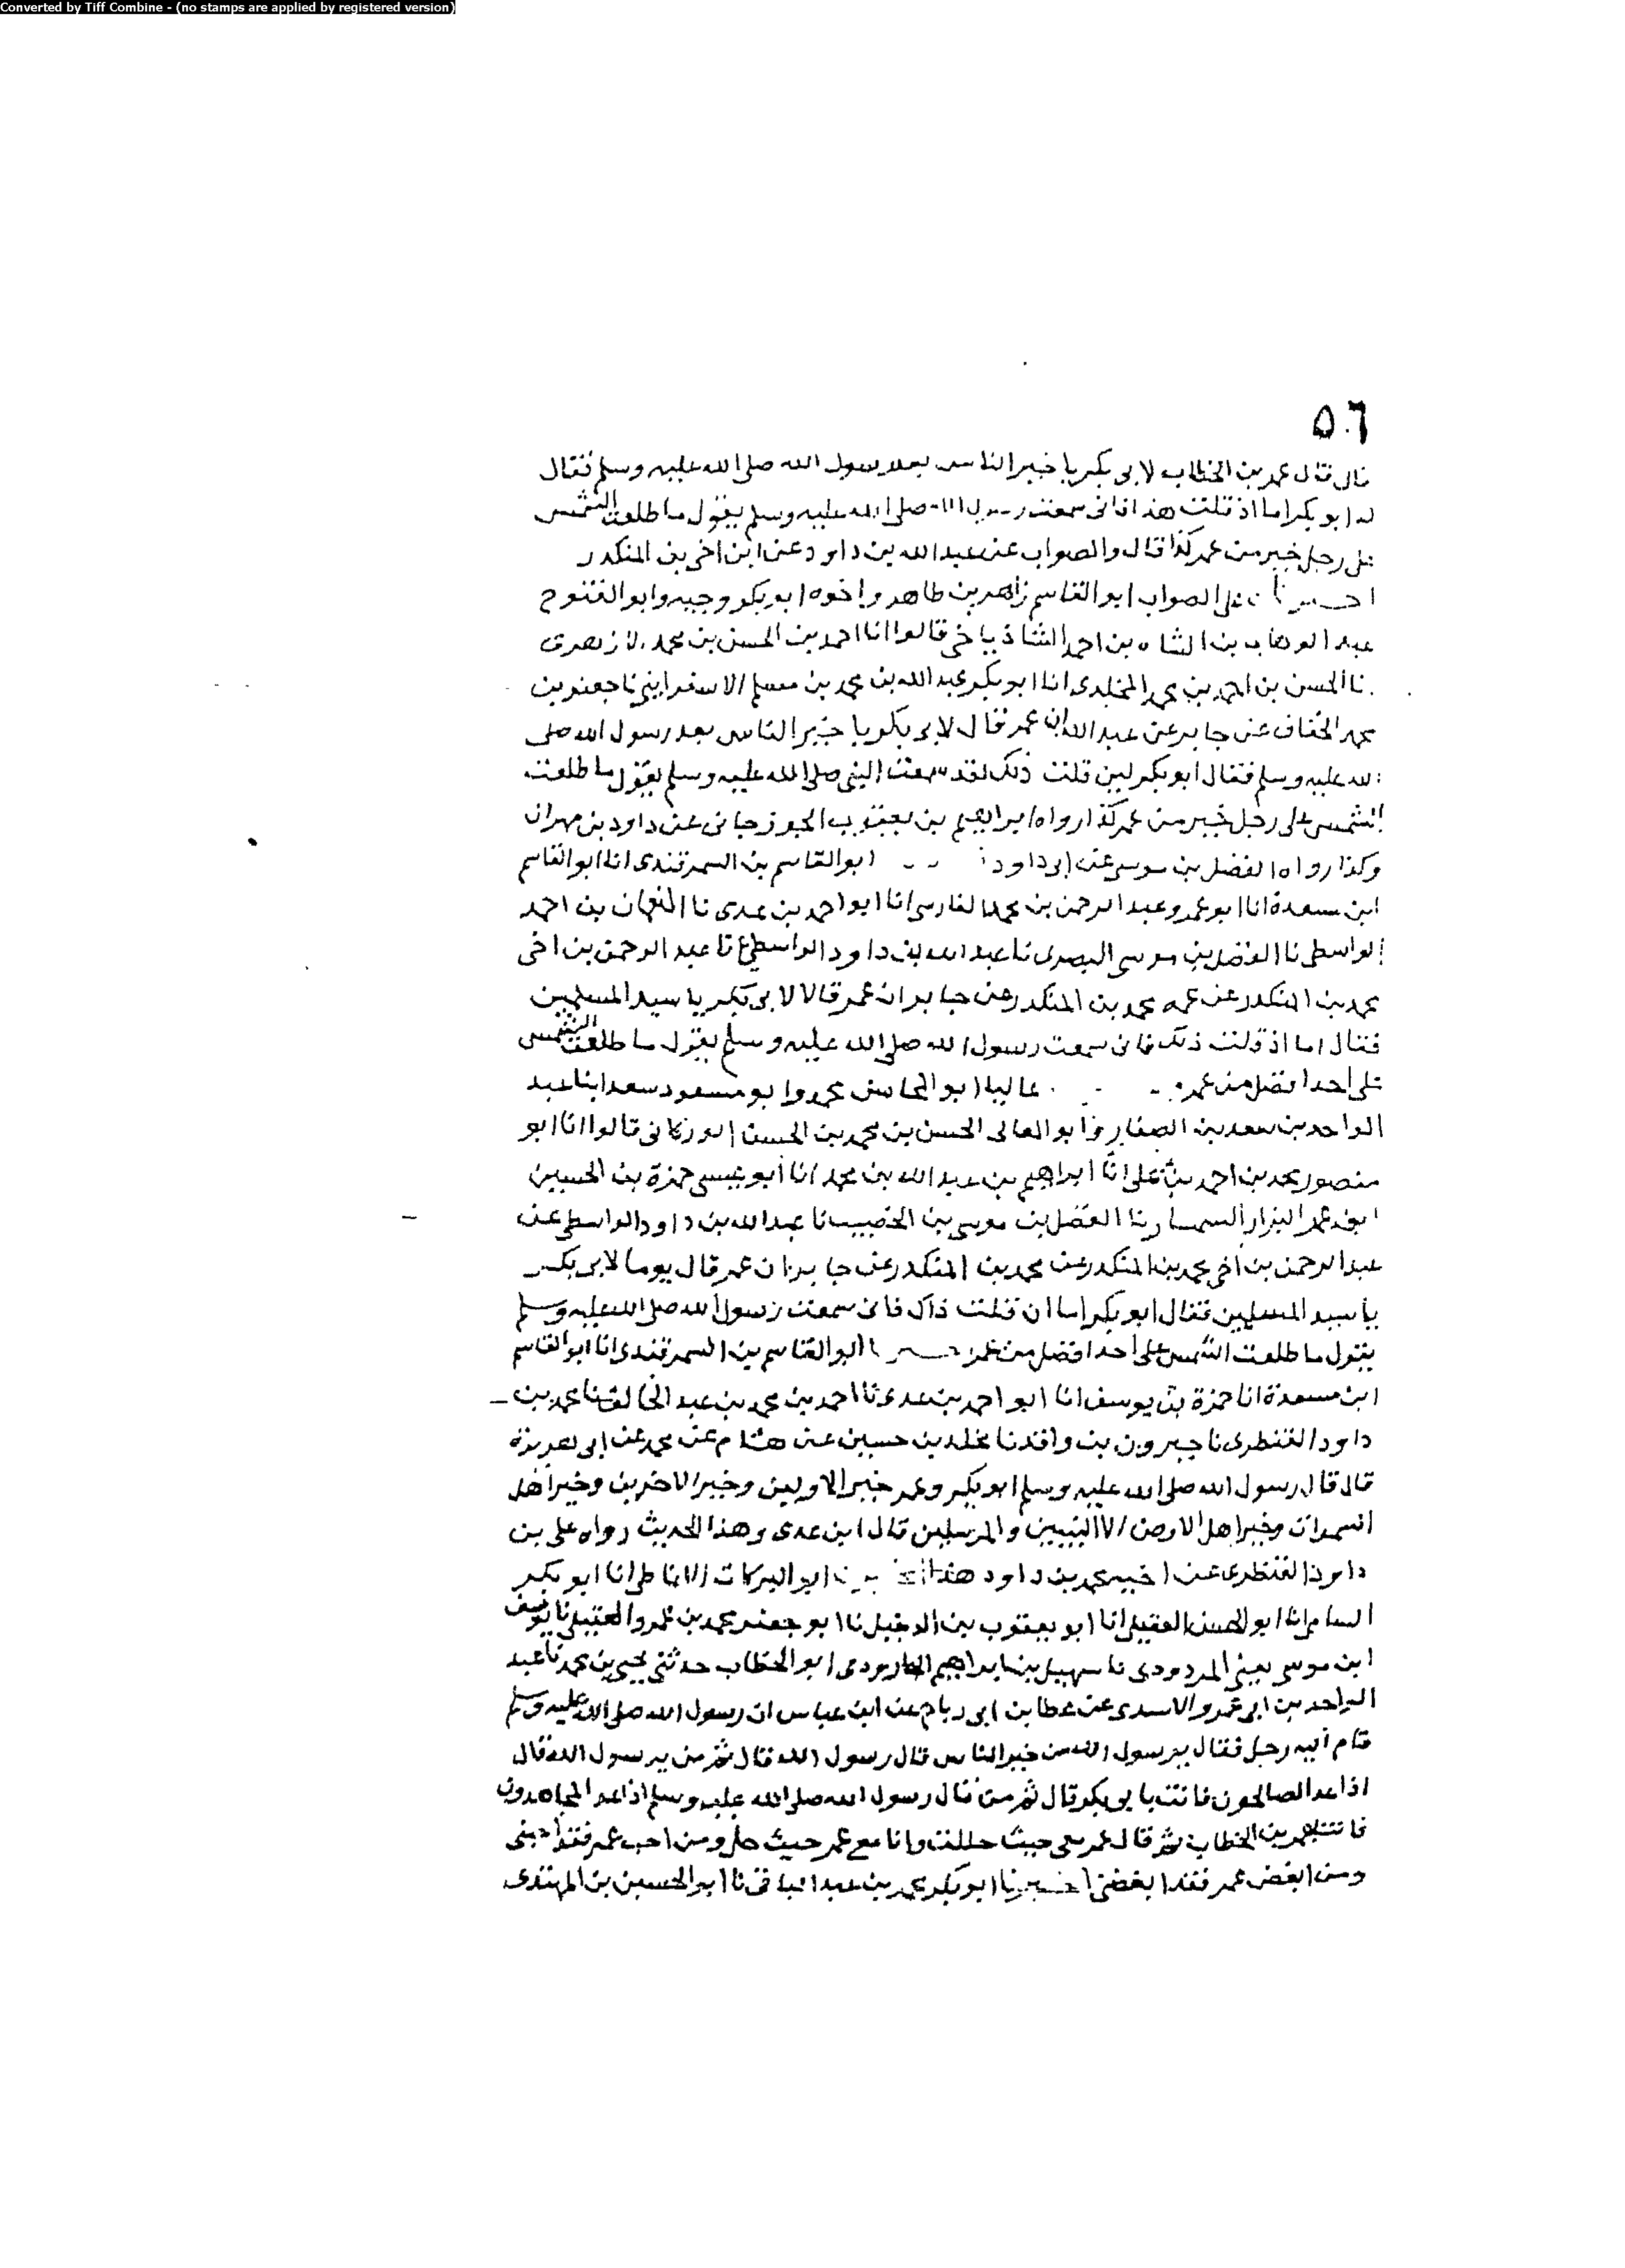 Converted by Tiff Combine - (no stamps are applied by registered version)
٥٦
قال قال عمر بن الخطاب لابى بكر يا خير الناس بعد رسول الله صلى الله عليه وسلم فقال
له ابو بكر اما اذ قلت هذا فانى سمعت رسول الله صلى الله عليه وسلم يقول ما طلعت الشمس
على رجل خير من عمر كذا قال والصواب عن عبد الله بن داود عن ابن اخى بن المنكدر
على الصواب ابو القاسم زاهر بن طاهر واخوه ابو بكر وجيه وابو الفتوح
عبد الوهاب بن الشاه بن احمد الشاذياخى قالوا انا احمد بن الحسن بن محمد الازهرى
نا الحسن بن احمد بن محمد المخلدى انا ابو بكر عبد الله بن محمد بن مسلم الاسفراينى نا جعفر بن
محمد الخفاف عن جابر عن عبد الله ان عمر قال لابى بكر يا خير الناس بعد رسول الله صلى
الله عليه وسلم فقال ابو بكر لين قلت ذلك لقد سمعت النبى صلى الله عليه وسلم يقول ما طلعت
الشمس على رجل خير من عمر كذا رواه ابراهيم بن يعقوب الجوزجانى عن داود بن مهران
وكذا رواه الفضل بن موسى عن ابى داود ابو القاسم بن السمرقندى انا ابو القاسم
ابن مسعدة انا ابو عمرو عبد الرحمن بن محمد الفارسى انا ابو احمد بن عدى نا النعمان بن احمد
الواسطى نا الفضل بن موسى البصرى نا عبد الله بن داود الواسطى نا عبد الرحمن بن اخى
محمد بن المنكدر عن عمه محمد بن المنكدر عن جابر ان عمر قال لابى بكر يا سيد المسلمين
فقال اما اذ قلت ذلك فانى سمعت رسول الله صلى الله عليه وسلم يقول ما طلعت الشمس
على احد افضل من عمر عاليا ابو المحاسن محمد وابو مسعود سعد ابنا عبد
الواحد بن سعد بن الصفار وابو المعالى الحسن بن محمد بن الحسن الوركانى قالوا انا ابو
منصور محمد بن احمد بن على انا ابراهيم بن عبد الله بن محمد انا ابو عيسى حمزة بن الحسين
ابن عمر البزار السمسار نا الفضل بن موسى بن الخصيب نا عبد الله بن داود الواسطى عن
عبد الرحمن بن اخى محمد بن المنكدر عن محمد بن المنكدر عن جابر ان عمر قال يوما لابى بكر
يا سيد المسلمين فقال ابو بكر اما ان قلت ذاك فانى سمعت رسول الله صلى الله عليه وسلم
يقول ما طلعت الشمس على احد افضل من عمر ابو القاسم بن السمرقندى انا ابو القاسم
ابن مسعدة انا حمزة بن يوسف انا ابو احمد بن عدى نا احمد بن محمد بن عبد الخالق نا محمد بن
داود القنطرى نا جبرون بن واقد نا مخلد بن حسين عن هشام عن محمد عن ابى هريرة
قال قال رسول الله صلى الله عليه وسلم ابو بكر وعمر خير الاولين وخير الاخرين وخير اهل
السموات وخير اهل الارض الا النبيين والمرسلين قال ابن عدى وهذا الحديث رواه على بن
داود القنطرى عن اخيه محمد بن داود هذا ابو البركات الانماطى انا ابو بكر
السامى انا ابو الحسن العقيلى انا ابو يعقوب بن الدخيل نا ابو جعفر محمد بن عمرو العقيلى نا يوسف
ابن موسى يعنى المروروذى نا سهيل بن ابراهيم الجارودى ابو الخطاب حدثنى يحيى بن محمد نا عبد
الواحد بن ابى عمرو الاسدى عن عطا بن ابى رباح عن ابن عباس ان رسول الله صلى الله عليه وسلم
قام اليه رجل فقال يرسول الله من خير الناس قال رسول الله قال ثم من يرسول الله قال
اذا عد الصالحون فاتت بابو بكر قال ثم من قال رسول الله صلى الله عليه وسلم اذا عد المجاهدون
فاتت بعمر بن الخطاب ثم قال عمر معى حيث حللت وانا مع عمر حيث حل ومن احب عمر فقد احبنى
ومن ابغض عمر فقد ابغضنى اخبرنا ابو بكر محمد بن عبد الباقى نا ابو الحسين بن المهتدى